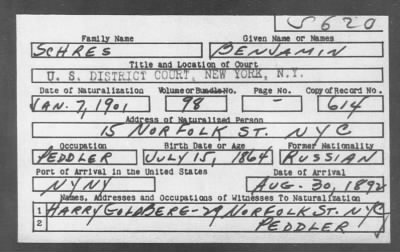 S620
Family Name Given Name or Names
SCHRES BENJAMIN
Title and Location of Court
U. S. DISTRICT COURT, NEW YORK, N.Y.
Date of Naturalization Volume or Bundle No. Page No. Copy of Record No.
JAN. 7, 1901 98 - 614
Address of Naturalized Person
15 NORFOLK ST. NYC
Occupation Birth Date or Age Former Nationality
PEDDLER JULY 15, 1864 RUSSIAN
Port of Arrival in the United States Date of Arrival
NYNY AUG. 30, 1892
Names, Addresses and Occupations of Witnesses To Naturalization
1 HARRY GOLDBERG - 29 NORFOLK ST. NYC
2 PEDDLER